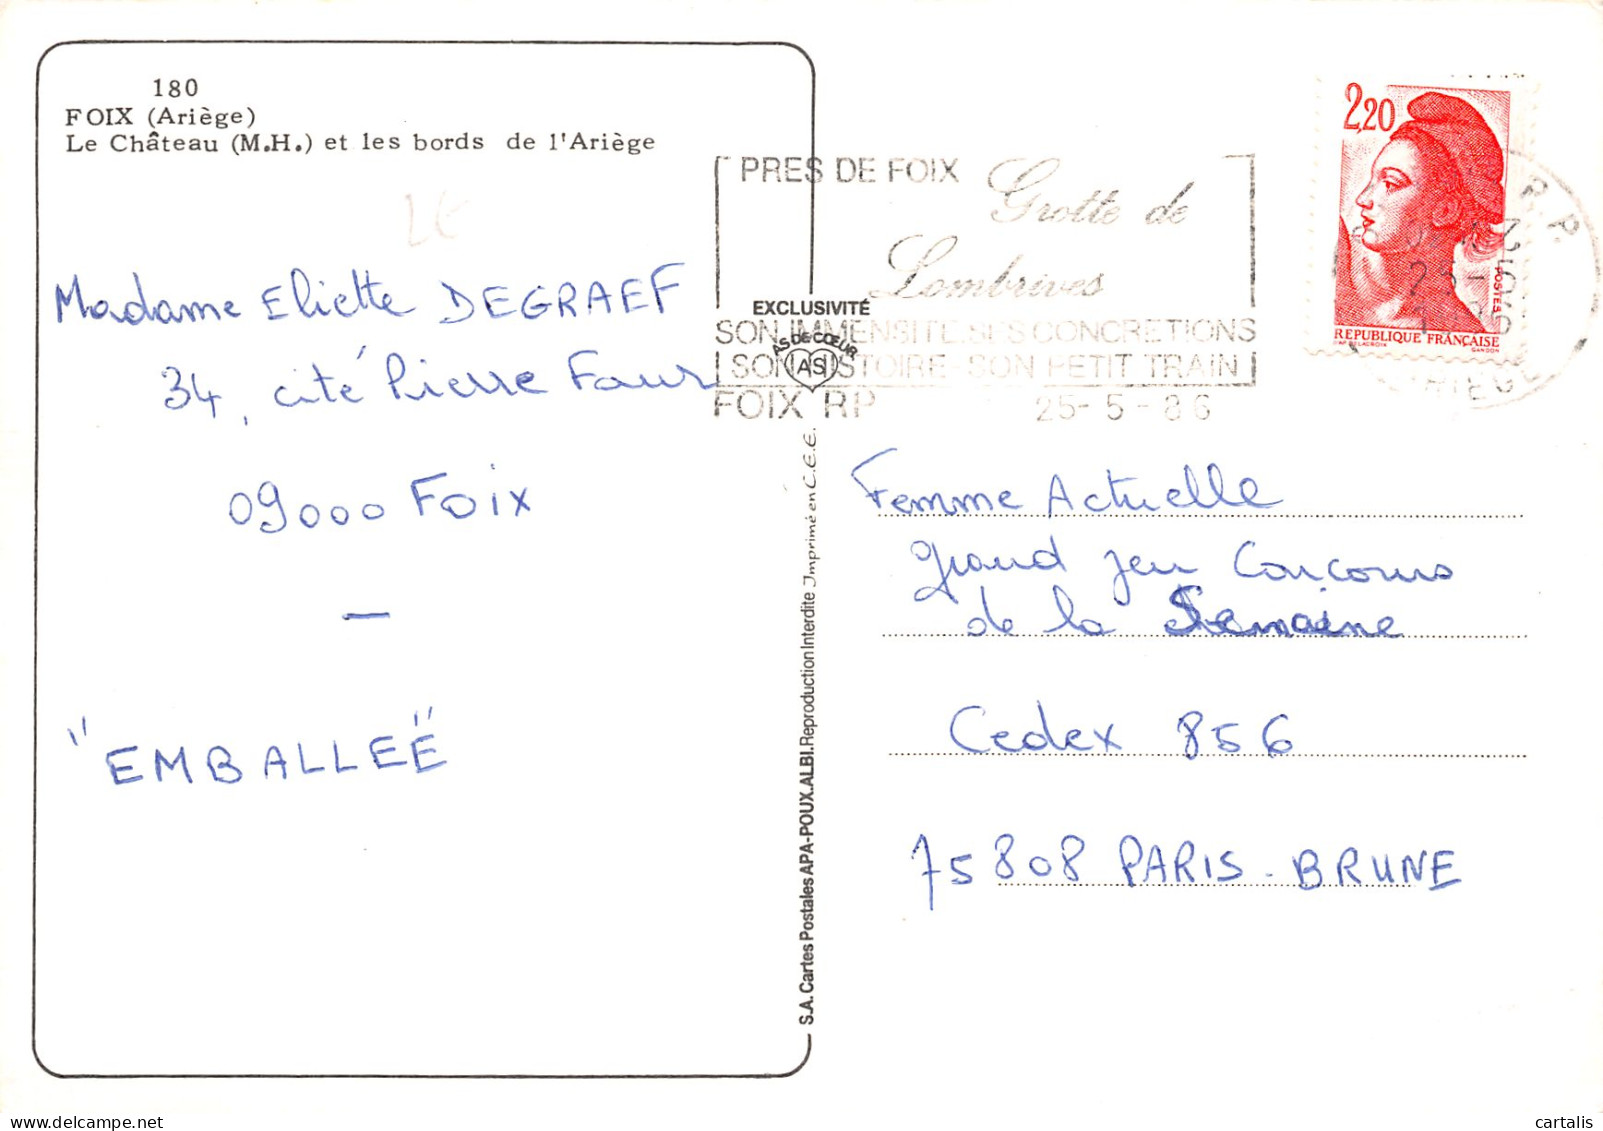 180
FOIX (Ariège)
Le Château (M.H.) et les bords de l'Ariège
2€
Madame Eliette DEGRAEF
34, cité Pierre Faur
09000 FOIX
—
"EMBALLEE"
PRES DE FOIX
Grotte de
Lombrives
SON IMMENSITE SES CONCRETIONS
SON HISTOIRE - SON PETIT TRAIN
FOIX RP 25-5-86
EXCLUSIVITÉ
AS DE CŒUR
AS
S.A. Cartes Postales APA-POUX.ALBI. Reproduction Interdite Imprimé en C.E.E.
2,20
POSTES
REPUBLIQUE FRANÇAISE
GANDON
R.P.
ARIEGE
Femme Actuelle
grand jeu Concours
de la Semaine
Cedex 856
75808 PARIS-BRUNE
cartalis